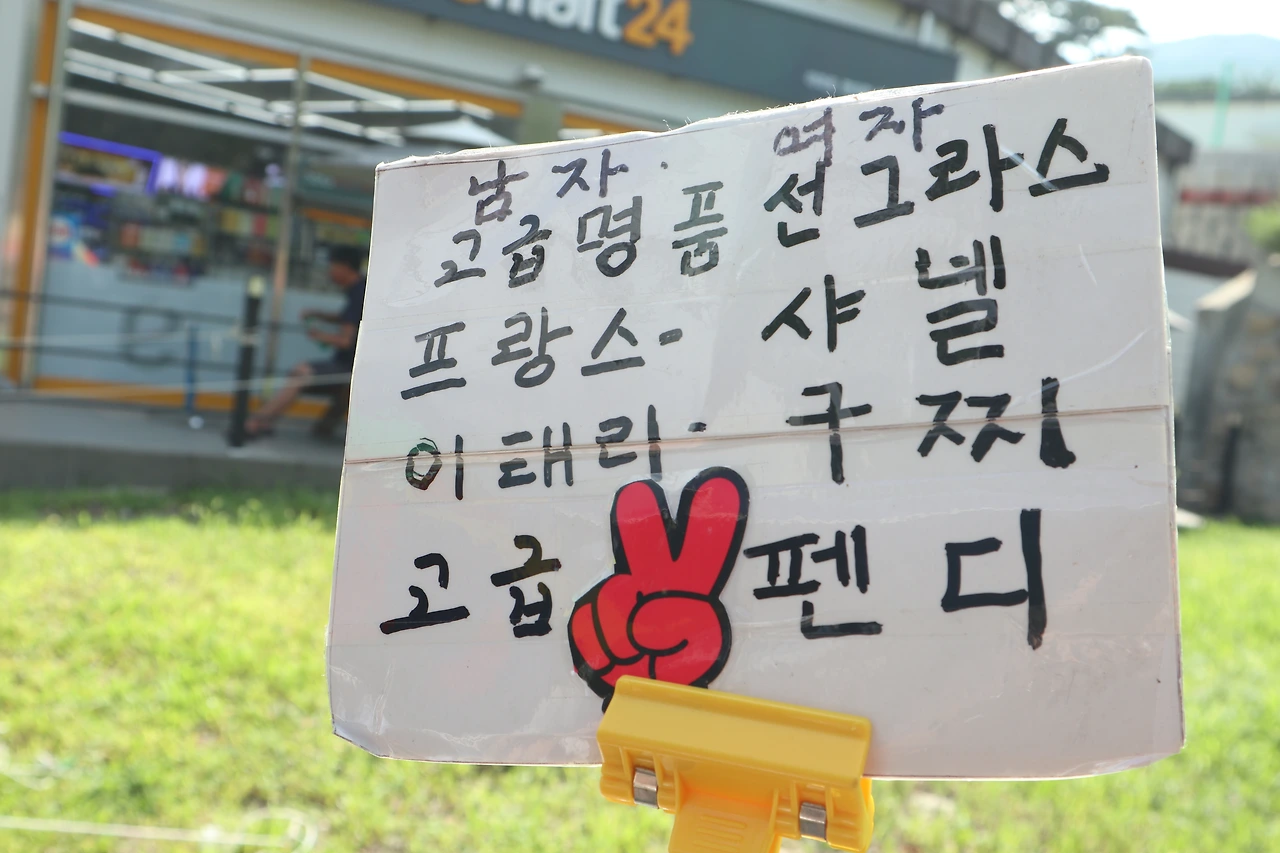 emart24
남자· 여자
고급명품 선그라스
프랑스- 샤넬
이태리- 구찌
고급 펜디